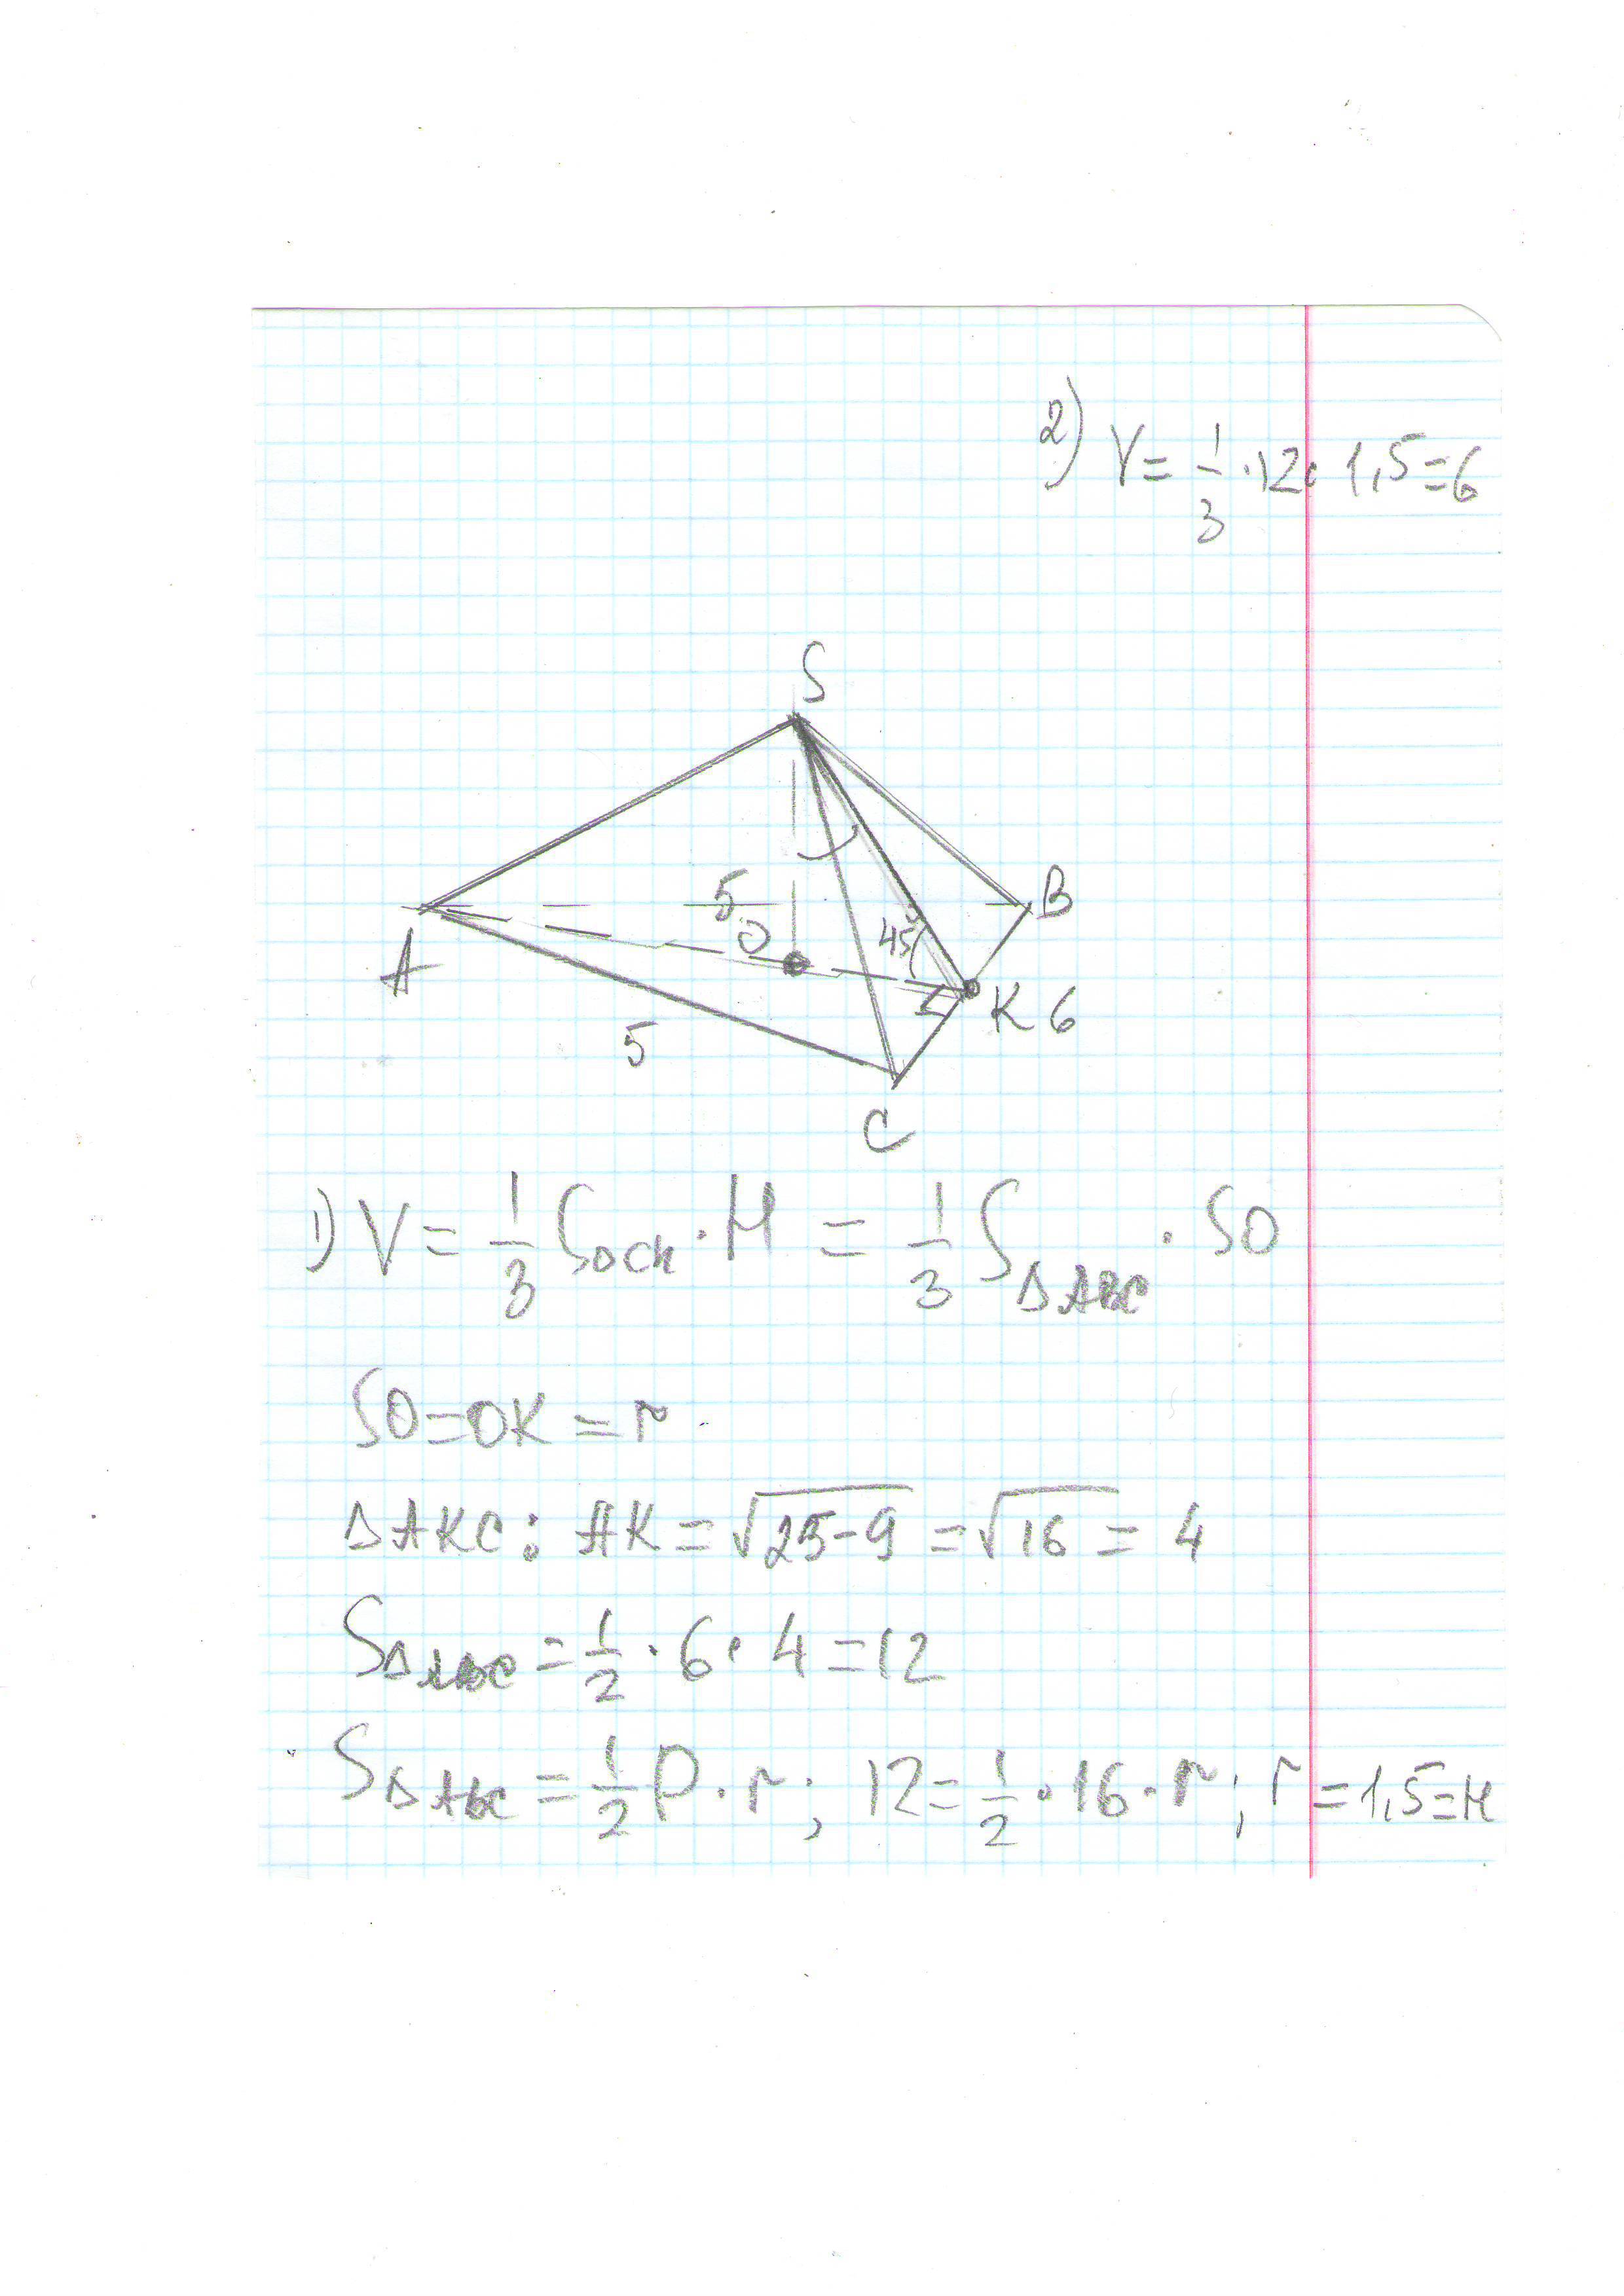 2) V = 1/3 · 12 · 1,5 = 6
S
5
O
45
B
A
K 6
5
C
1) V = 1/3 Sосн · H = 1/3 S△ABC · SO
SO = OK = r
△AKC: AK = √25-9 = √16 = 4
S△ABC = 1/2 · 6 · 4 = 12
S△ABC = 1/2 P · r; 12 = 1/2 · 16 · r; r = 1,5 = H